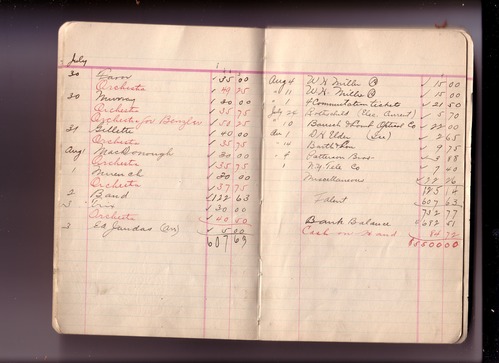 July
30 Favor 35 00
Orchestra 49 25
30 Murray 30 00
Orchestra 35 75
Orchestra for Benzler 50 25
31 Gillette 40 00
Orchestra 35 75
Aug 1 MacDonough 30 00
Orchestra 35 75
1 30 00
Orchestra 37 75
2 Band 122 63
3 Trio 30 00
Orchestra 40 50
3 Ed Jandas (an) 5 00
607 63
Aug 4 W. H. Miller @ 15 00
" 11 W. H. Miller @ 15 00
" 1 4 Commutation tickets 21 50
July 29 Rothschild (Elec Current) 5 70
" 10 Bausch & Lomb Optical Co 22 00
Aug 1 D. H. Elder 2 65
" 14 Barth & Son 9 75
" 4 Patterson Bros. 3 18
" 1 N.Y. Tele Co 7 40
Miscellaneous 22 96
125 14
Talent 607 63
732 77
Bank Balance 682 51
Cash on Hand 84 72
$1500 00